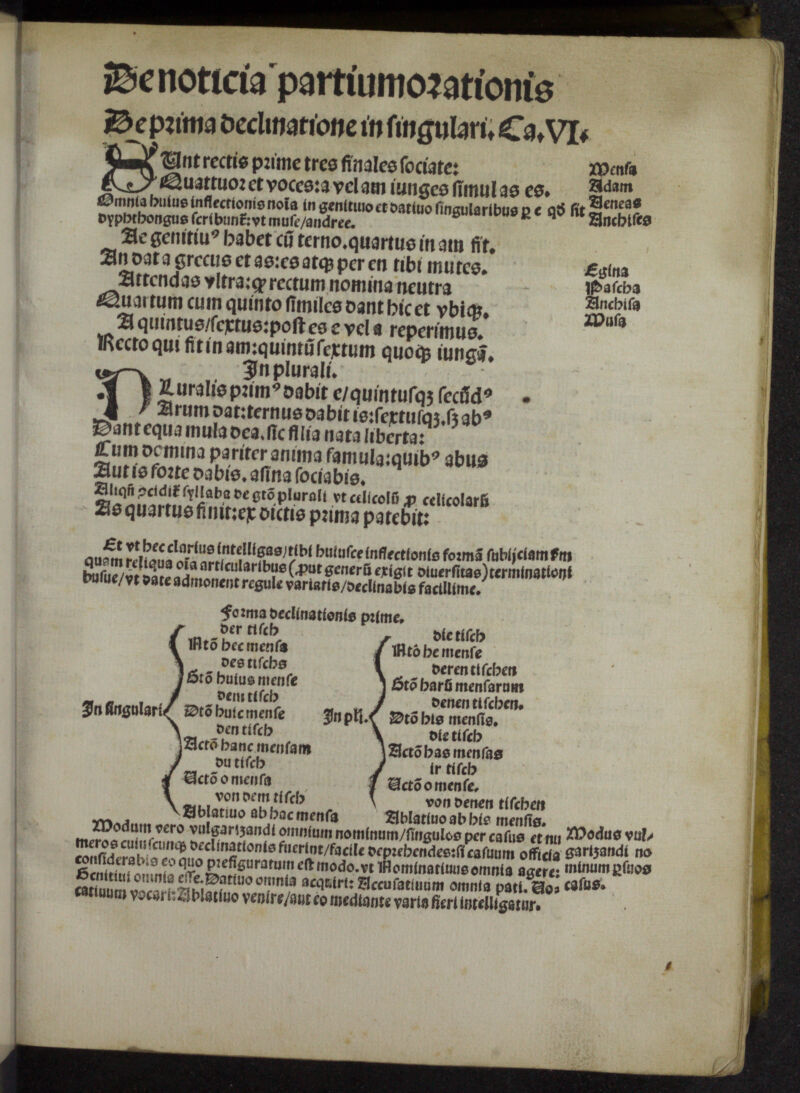 De noticia partiumorationis
De prima declinatione in singulari. Ca. VI.
SUnt rectis prime tres finales sociate: Mensa
Quattuor et voces: a vel am iunges simul as es. Adam
Omnia huius inflectionis noīa in genitiuo et datiuo singularibus ꝑ e qđ fit Aeneas
dyphthongus scribunt̃: vt muse/andree. Anchises
Ae genitiuꝰ habet cū terno. quartus in am fit.
An dat a grecus et as: es atqꝫ per en tibi mutes.
Attendas vltra: ꝙ rectum nomina neutra Egina
Quartum cum quinto similes dant hic et vbiqꝫ. Pascha
A quintus/sextus: post es e vel a reperimus. Anchisa
Recto qui fit in am: quintū sextum quoqꝫ iungā. Musa
In plurali.
PLuralis primꝰ dabit e/quintusqꝫ secūdꝰ
Arum dat: ternus dabit is: sextusqꝫ. sꝫ abꝰ
Dant equa mula dea. sic filia nata liberta:
Cum domina pariter anima famula: quibꝰ abus
Aut is forte dabis. asina sociabis.
Aliqñ ꝯcidit̃ syllaba de gtō plurali vt celicolū ꝓ celicolarū
As quartus finit: ex dictis prima patebit:
Et vt hec clarius intelligas/tibi huiusce inflectionis formā subijciam ẜm
quam reliqua oīa articularibus (ꝓut generū exigit diuersitas) terminationi
busue/vt date admonent regule variatis/declinabis facillime.
Forma declinationis prime.
In singulari
der tisch
Ntō hec mensa
des tischs
Gtō huius mense
dem tisch
Dtō huic mense
den tisch
Actō hanc mensam
du tisch
Uctō o mensa
von dem tisch
Ablatiuo ab hac mensa
In pli.
die tisch
Ntō he mense
deren tischen
Gtō harū mensarum
denen tischen.
Dtō his mensis.
die tisch
Actō has mensas
ir tisch
Uctō o mense.
von denen tischen
Ablatiuo ab his mensis.
Modum vero vulgarizandi omnium nominum/singulos per casus et nu
meros cuiuscunqꝫ declinationis fuerint/facile deprehendes: si casuum officia
considerabis eo quo prefiguratum est modo. vt Nominatiuus omnia agere:
Genitiui omnia esse. Datiuo omnia acquiri: Accusatiuum omnia pati. Uo⸗
catiuum vocari: Ablatiuo venire/aut eo mediante varia fieri intelligatur.
Modus vul⸗
garizandi no
minum ꝑ suos
casus.